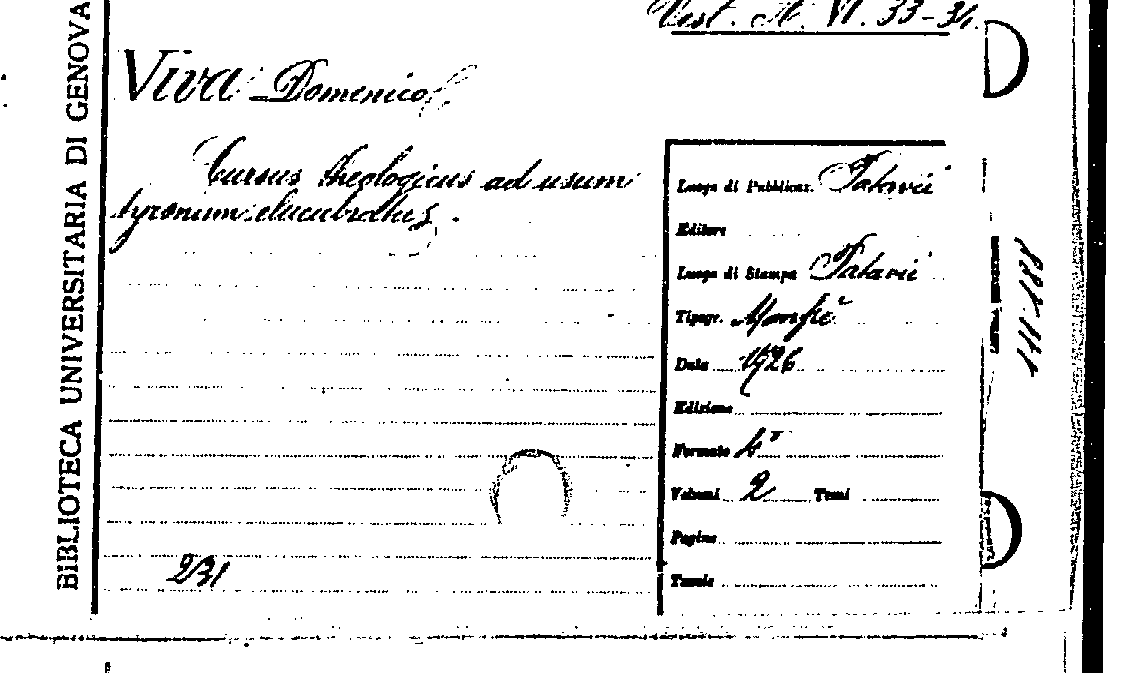 Vest. A. VI. 33-34.
BIBLIOTECA UNIVERSITARIA DI GENOVA
Viva Domenico
Cursus theologicus ad usum
tyronum elucubratus.
Luogo di Pubblicaz. Patavii
Editore
Luogo di Stampa Patavii
Tipogr. Manfrè
Data 1726
Edizione
Formato 4°
Volumi 2 Tomi
Pagine
Tavole
231